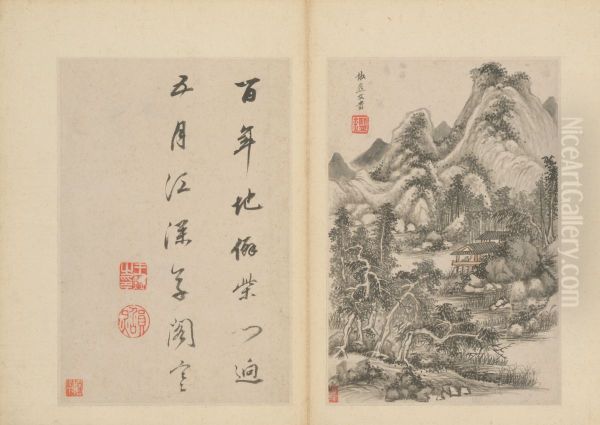 百年地僻柴門迥
五月江深草閣寒
倣燕文貴
NiceArtGallery.com